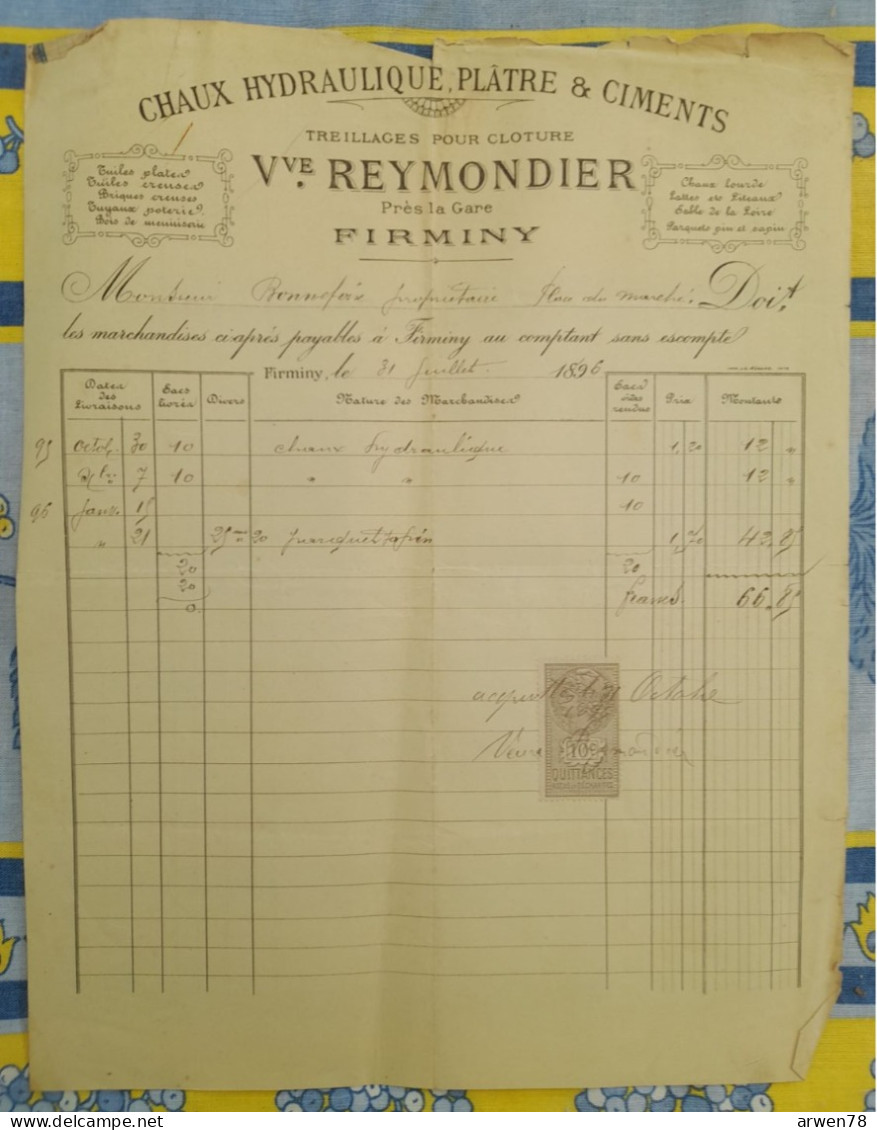 CHAUX HYDRAULIQUE, PLÂTRE & CIMENTS
TREILLAGES POUR CLOTURE
VVE. REYMONDIER
Près la Gare
FIRMINY
Tuiles plates
Tuiles creuses
Briques creuses
Tuyaux poterie
Bois de menuiserie
Chaux lourde
Lattes et Liteaux
Sable de la Loire
Parquets pin et sapin
Monsieur Bonnefoix propriétaire Place du marché Doit
les marchandises ci-après payables à Firminy au comptant sans escompte
Firminy, le 31 Juillet 1896
Dates des Livraisons Sacs livrés Divers Nature des Marchandises Sacs vides rendus Prix Montants
95 octob. 30 10 chaux hydraulique 1,20 12 "
xbre 7 10 " " 10 12 "
96 Janv. 15 10
" 21 25 20 parquet 1,70 42.85
20 20
20 francs 66.85
0
acquitté le 31 Octobre
Veuve Reymondier
10c
QUITTANCES
arwen78